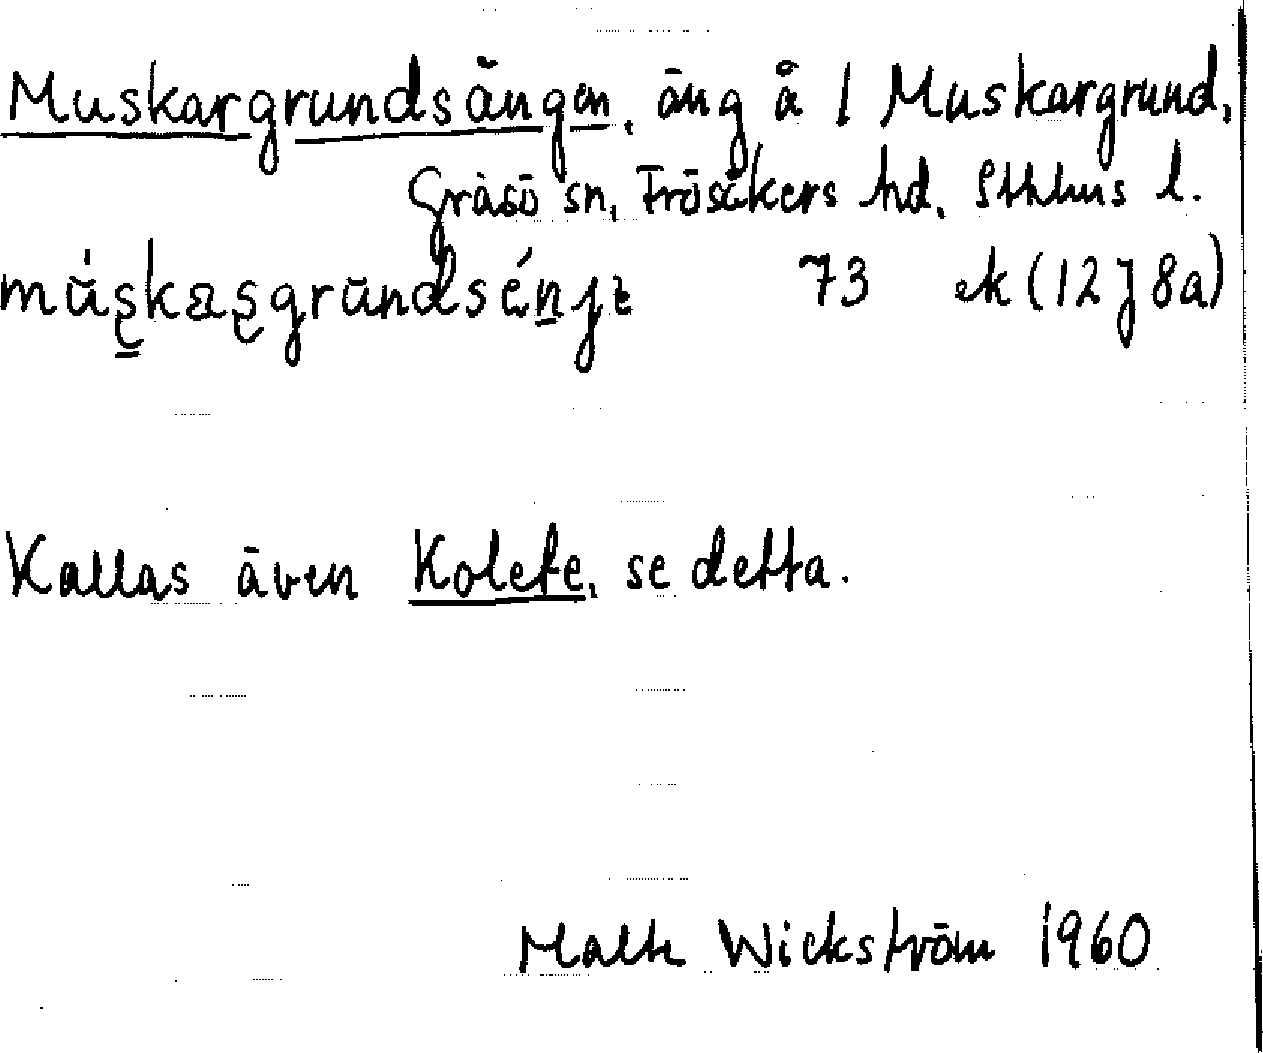 Muskargrundsängen, äng å l Muskargrund,
Gräsö sn, Frösåkers hd, Sthlms l.
73 ek (12 J 8a)
Kallas även Kolete, se detta.
Wickström 1960